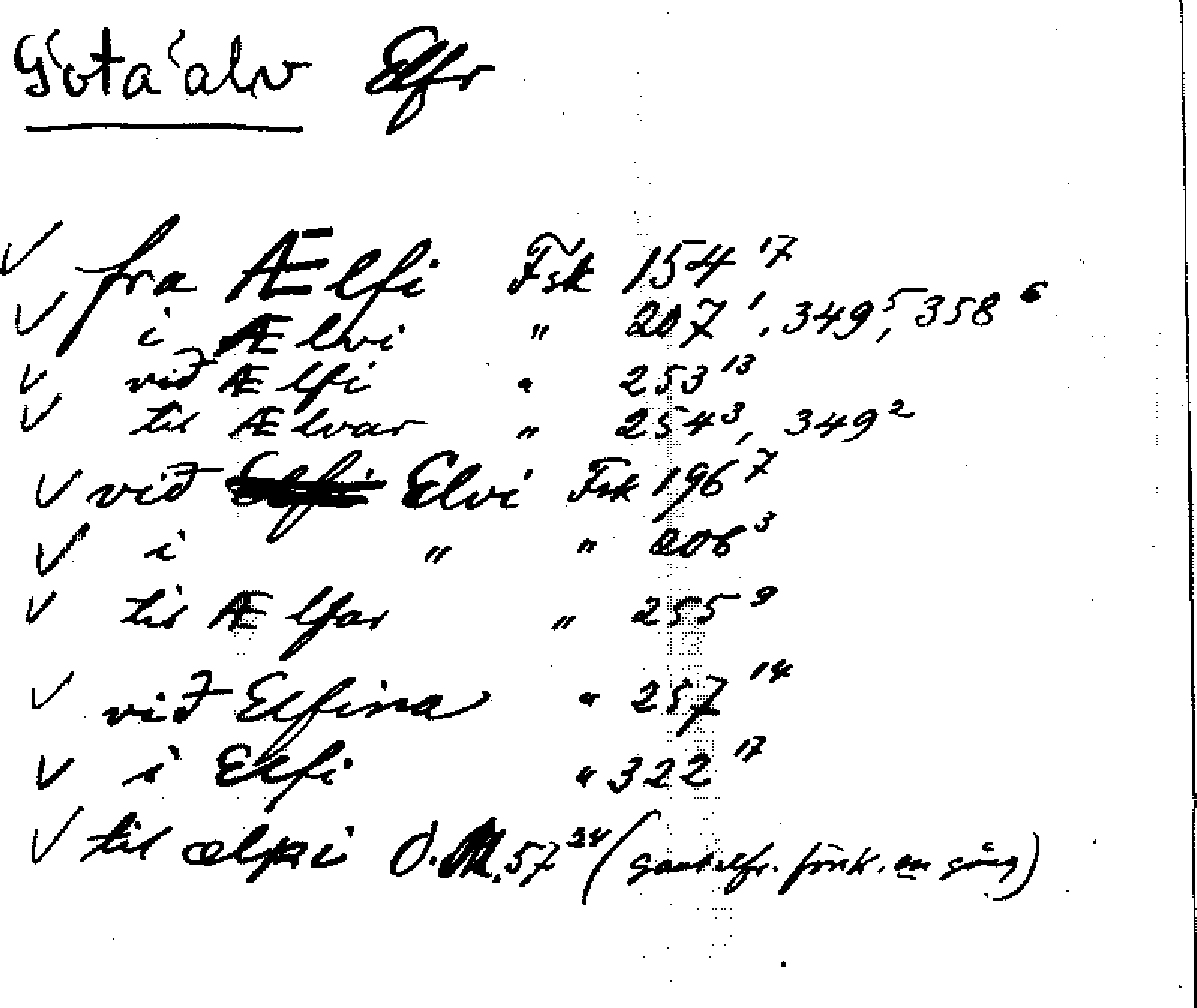 Göta älv Elfr
fra Ælfi Fsk 154 17
i Ælvi " 207 1, 349 5, 358 6
við Ælfi " 253 13
til Ælvar " 254 3, 349 2
við Elvi Fsk 196 7
i " " 206 3
til Ælfar " 255 9
við Elfina " 257 14
i Elfi " 322 17
til ælpi O. 57 34 (Gautelfr. förk. en gång)